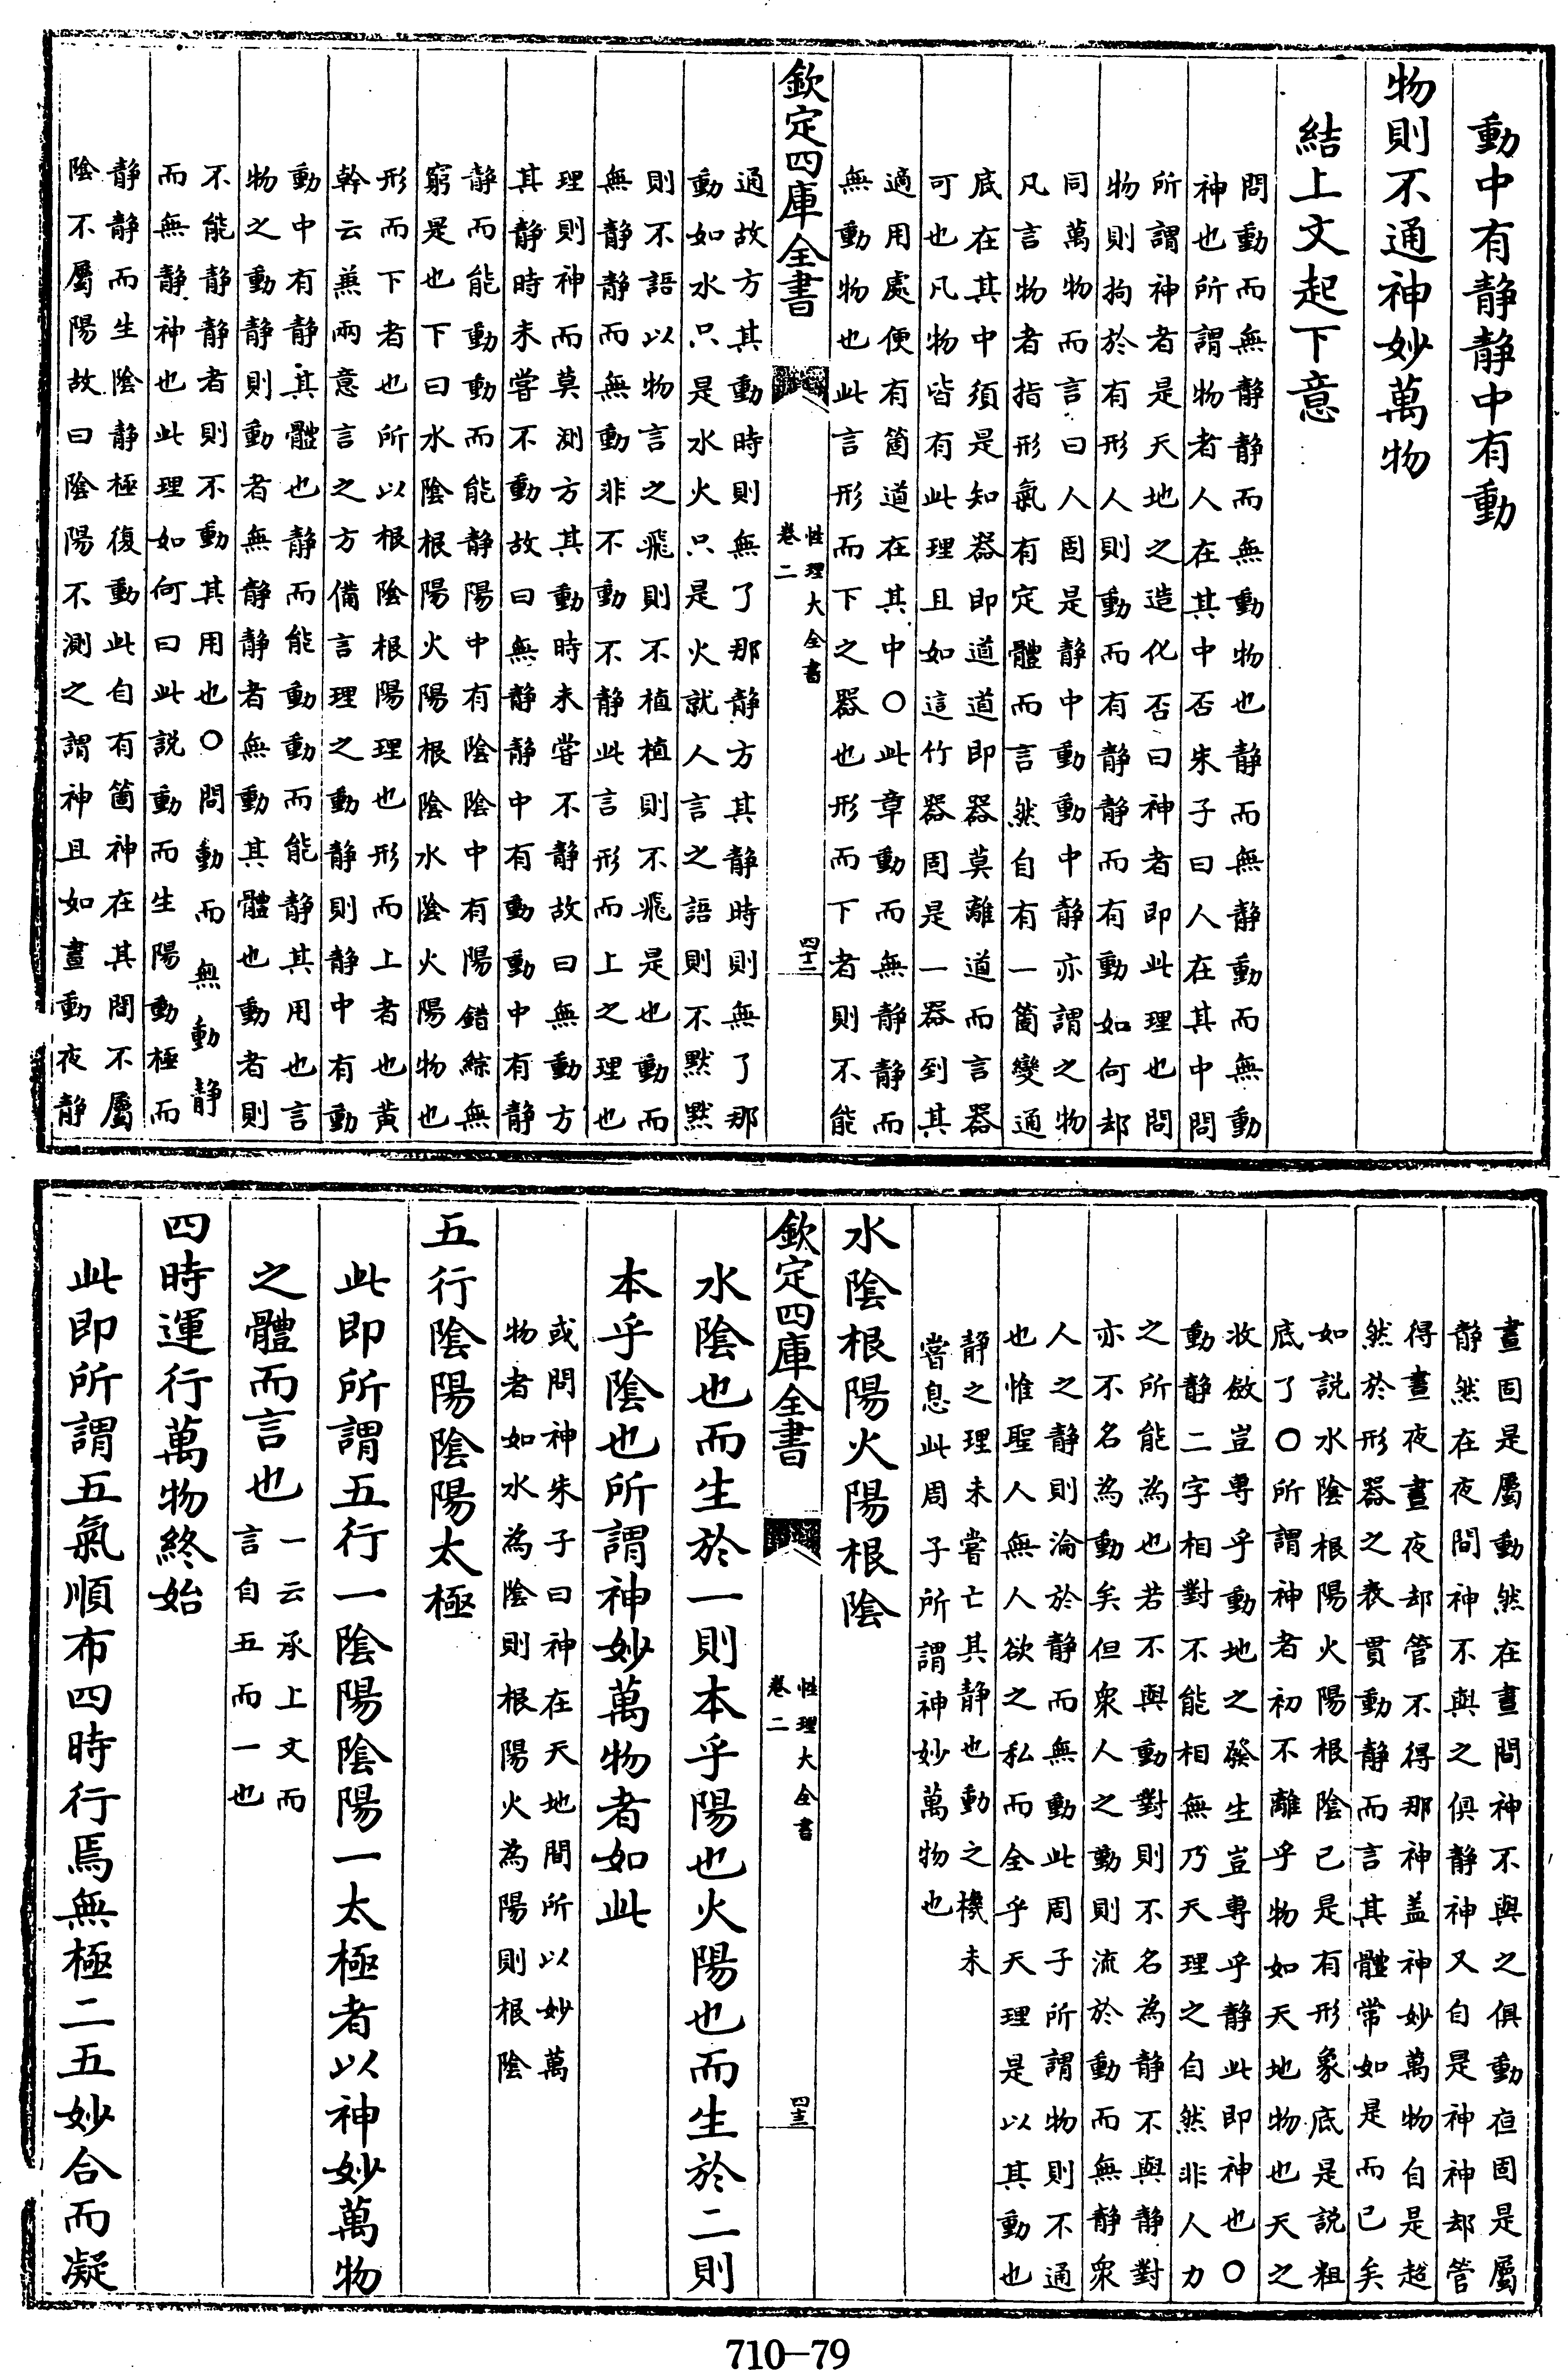 動中有静静中有動
物則不通神妙萬物
結上文起下意
問動而無静静而無動物也静而無静動而無動
神也所謂物者人在其中否朱子曰人在其中問
所謂神者是天地之造化否曰神者即此理也問
物則拘於有形人則動而有静静而有動如何却
同萬物而言曰人固是静中動動中静亦謂之物
凡言物者指形氣有定體而言然自有一箇變通
底在其中須是知器即道道即器莫離道而言器
可也凡物皆有此理且如這竹器固是一器到其
適用處便有箇道在其中○此章動而無静静而
無動物也此言形而下之器也形而下者則不能
欽定四庫全書
性理大全書
卷二
四十二
通故方其動時則無了那静方其静時則無了那
動如水只是水火只是火就人言之語則不默默
則不語以物言之飛則不植植則不飛是也動而
無静静而無動非不動不静此言形而上之理也
理則神而莫測方其動時未嘗不静故曰無動方
其静時未嘗不動故曰無静静中有動動中有静
静而能動動而能静陽中有陰陰中有陽錯綜無
窮是也下曰水陰根陽火陽根陰水陰火陽物也
形而下者也所以根陰根陽理也形而上者也黄
幹云兼兩意言之方備言理之動静則静中有動
動中有静其體也静而能動動而能静其用也言
物之動静則動者無静静者無動其體也動者則
不能静静者則不動其用也○問動而無動静
而無静神也此理如何曰此説動而生陽動極而
静静而生陰静極復動此自有箇神在其間不屬
陰不屬陽故曰陰陽不測之謂神且如晝動夜静
晝固是屬動然在晝間神不與之俱動夜固是屬
静然在夜間神不與之俱静神又自是神神却管
得晝夜晝夜却管不得那神蓋神妙萬物自是超
然於形器之表貫動静而言其體常如是而已矣
如説水陰根陽火陽根陰已是有形象底是説粗
底了○所謂神者初不離乎物如天地物也天之
收斂豈專乎動地之發生豈專乎静此即神也○
動静二字相對不能相無乃天理之自然非人力
之所能為也若不與動對則不名為静不與静對
亦不名為動矣但衆人之動則流於動而無静衆
人之静則淪於静而無動此周子所謂物則不通
也惟聖人無人欲之私而全乎天理是以其動也
静之理未嘗亡其静也動之機未
嘗息此周子所謂神妙萬物也
水陰根陽火陽根陰
欽定四庫全書
性理大全書
卷二
四十三
水陰也而生於一則本乎陽也火陽也而生於二則
本乎陰也所謂神妙萬物者如此
或問神朱子曰神在天地間所以妙萬
物者如水為陰則根陽火為陽則根陰
五行陰陽陰陽太極
此即所謂五行一陰陽陰陽一太極者以神妙萬物
之體而言也一云承上文而
言自五而一也
四時運行萬物終始
此即所謂五氣順布四時行焉無極二五妙合而凝
710-79